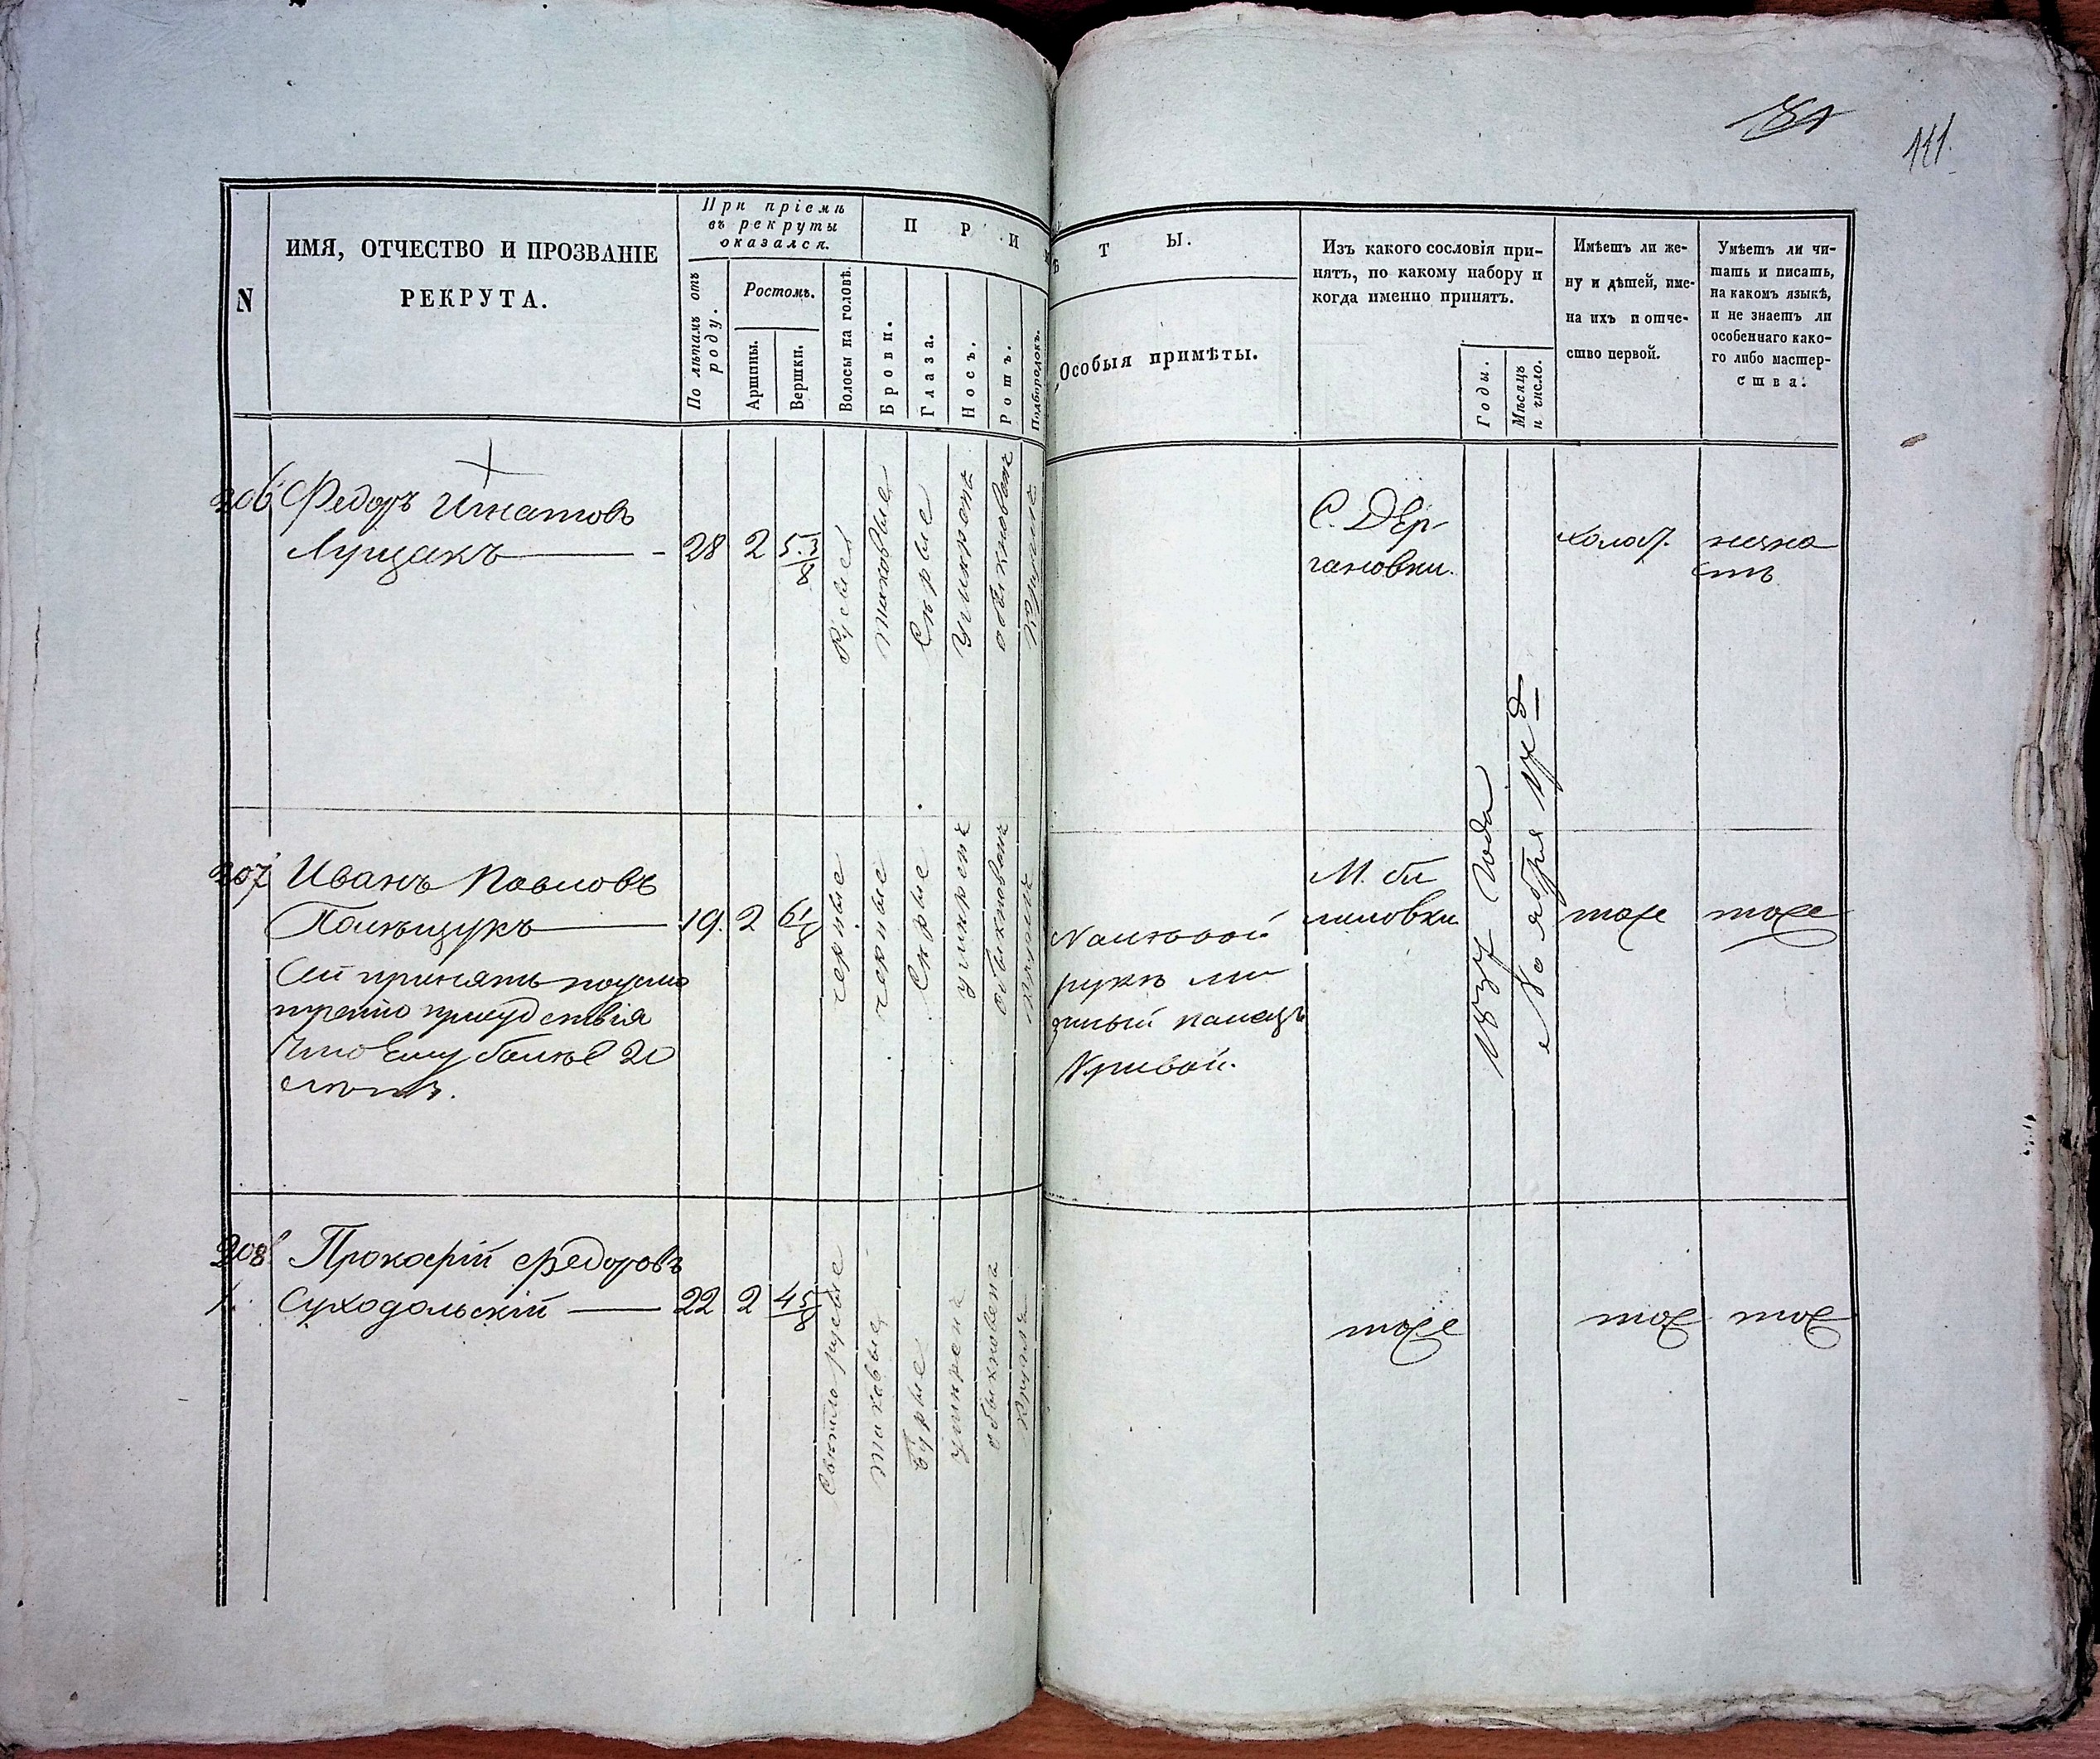 111.
N
ИМЯ, ОТЧЕСТВО И ПРОЗВАНІЕ
РЕКРУТА.
При пріемѣ
въ рекруты
оказался.
По лѣтамъ отъ
роду.
Ростомъ.
Аршины.
Вершки.
П Р И
Волосы на головѣ.
Брови.
Глаза.
Носъ.
Ротъ.
Подбородокъ.
Ѣ Т Ы.
Особыя примѣты.
Изъ какого сословія при-
нятъ, по какому набору и
когда именно принятъ.
Годы.
Мѣсяцъ
и число.
Имѣетъ ли же-
ну и дѣтей, име-
на ихъ и отче-
ство первой.
Умѣетъ ли чи-
тать и писать,
на какомъ языкѣ,
и не знаетъ ли
особеннаго како-
го либо мастер-
ства.
206 Федоръ Игнатовъ
Лущакъ 28 2 5 3/8
Русые
таковые
Сѣрые
Умѣренъ
обыкновенъ
Круглъ
С. Дер-
гановки.
холост.
незна
етъ
1837 года
Ноября 17 д
207 Иванъ Павловъ
Полѣщукъ 19. 2 6 1/8
Сей принятъ поусмо
трению присудствія
Что ему болѣе 20
лѣтъ.
черные
черные
Сѣрые
умѣренъ
обыкновенъ
круглъ
На лѣвой
рукѣ ми
зиный палецъ
Кривой.
М. би
лиловки
тоже
тоже
208 Прокофій Федоровъ
Суходольскій 22 2 4 5/8
Свѣтлорусые
таковые
Бурые
умѣренъ
обыкновенъ
Круглъ
тоже
тоже
тоже